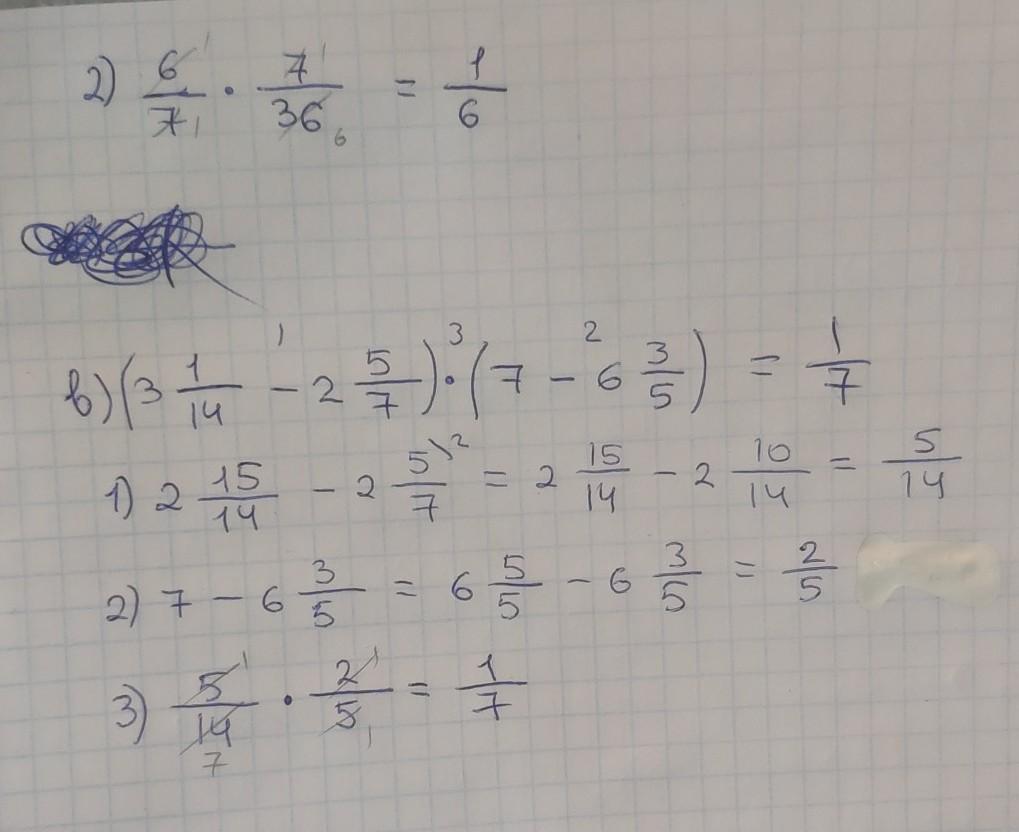 2) 6/7 · 7/36 = 1/6
в) (3 1/14 - 2 5/7) · (7 - 6 3/5) = 1/7
1) 2 15/14 - 2 5/7 = 2 15/14 - 2 10/14 = 5/14
2) 7 - 6 3/5 = 6 5/5 - 6 3/5 = 2/5
3) 5/14 · 2/5 = 1/7